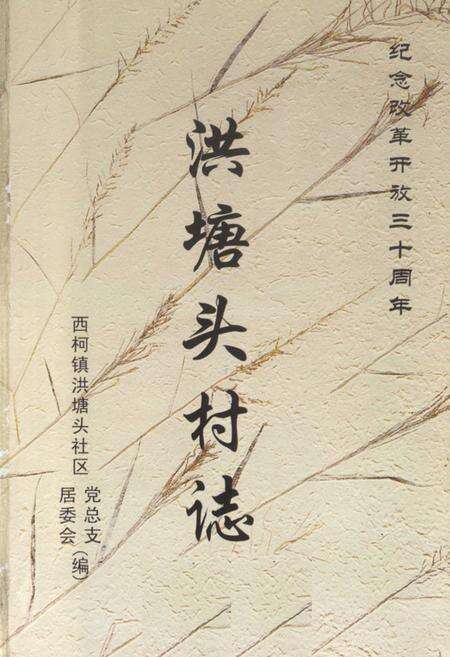 纪念改革开放三十周年
洪塘头村誌
西柯镇洪塘头社区
党总支
居委会(编)